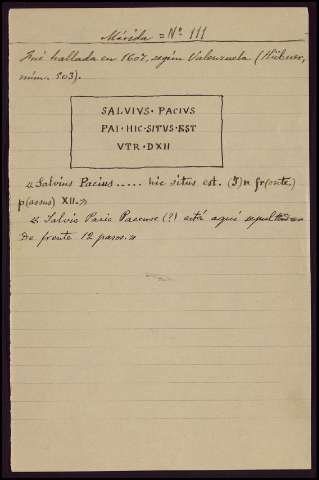 Mérida = Nº 111
Fué hallada en 1607, según Valenzuela (Hübner,
núm. 503).
SALVIVS · PACIVS
PAI · HIC · SITVS · EST
VTR · DXII
"Salvius Pacius ..... hic situs est. (I)n fr(onte)
p(assus) XII."
"Salvio Pacio Pacense (?) está aquí sepultado
de frente 12 pasos."